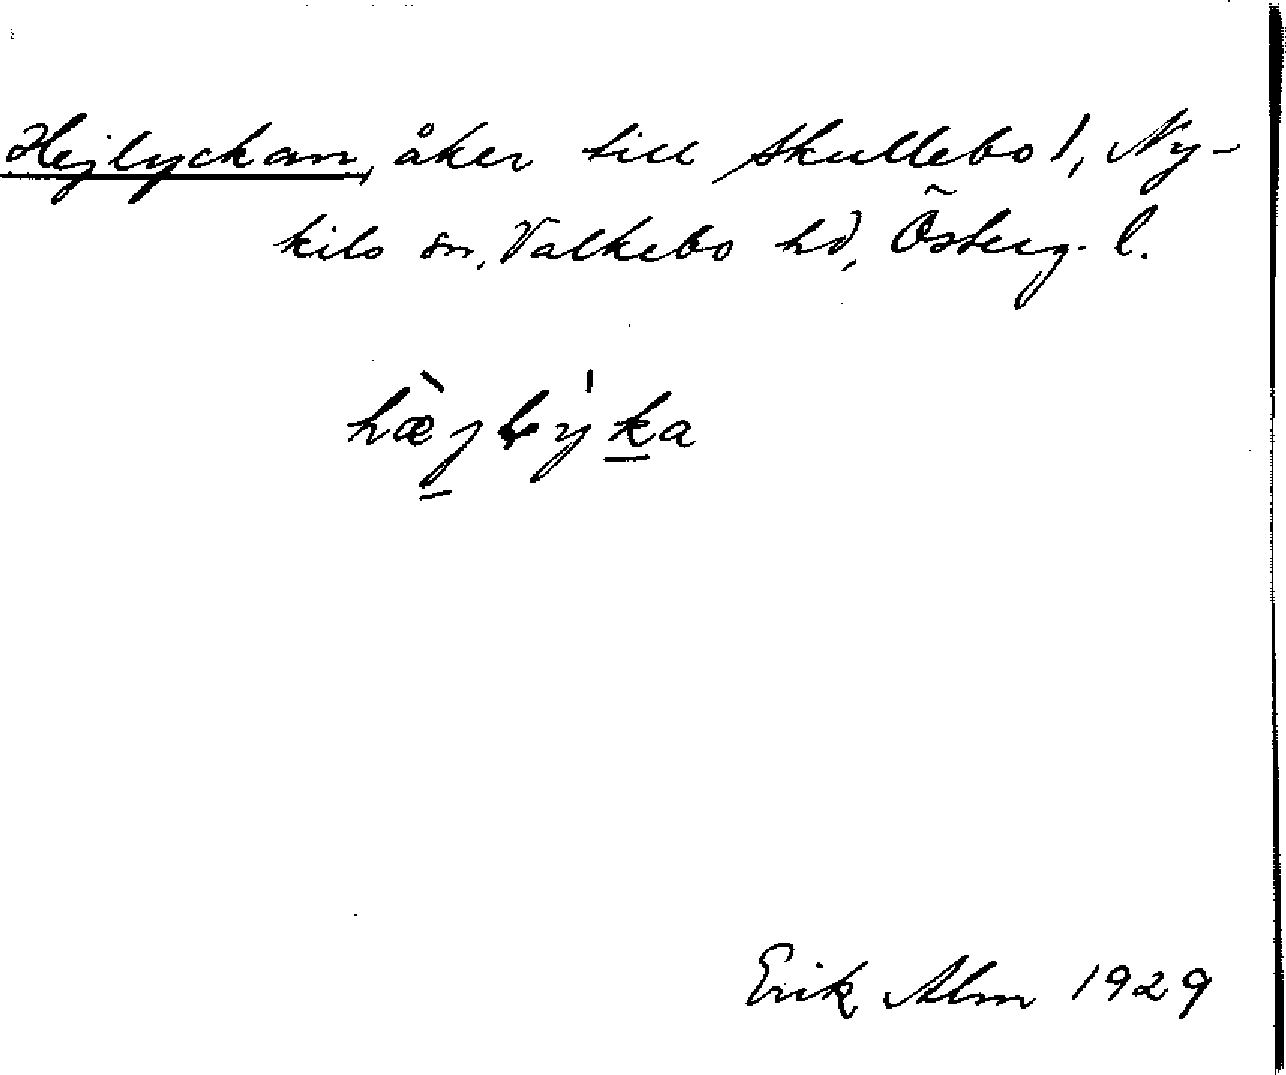 Hejlyckan, åker till Skullebo 1, Ny-
kils sn, Valkebo hd, Österg. l.
hæ̀jlýka
Erik Alm 1929